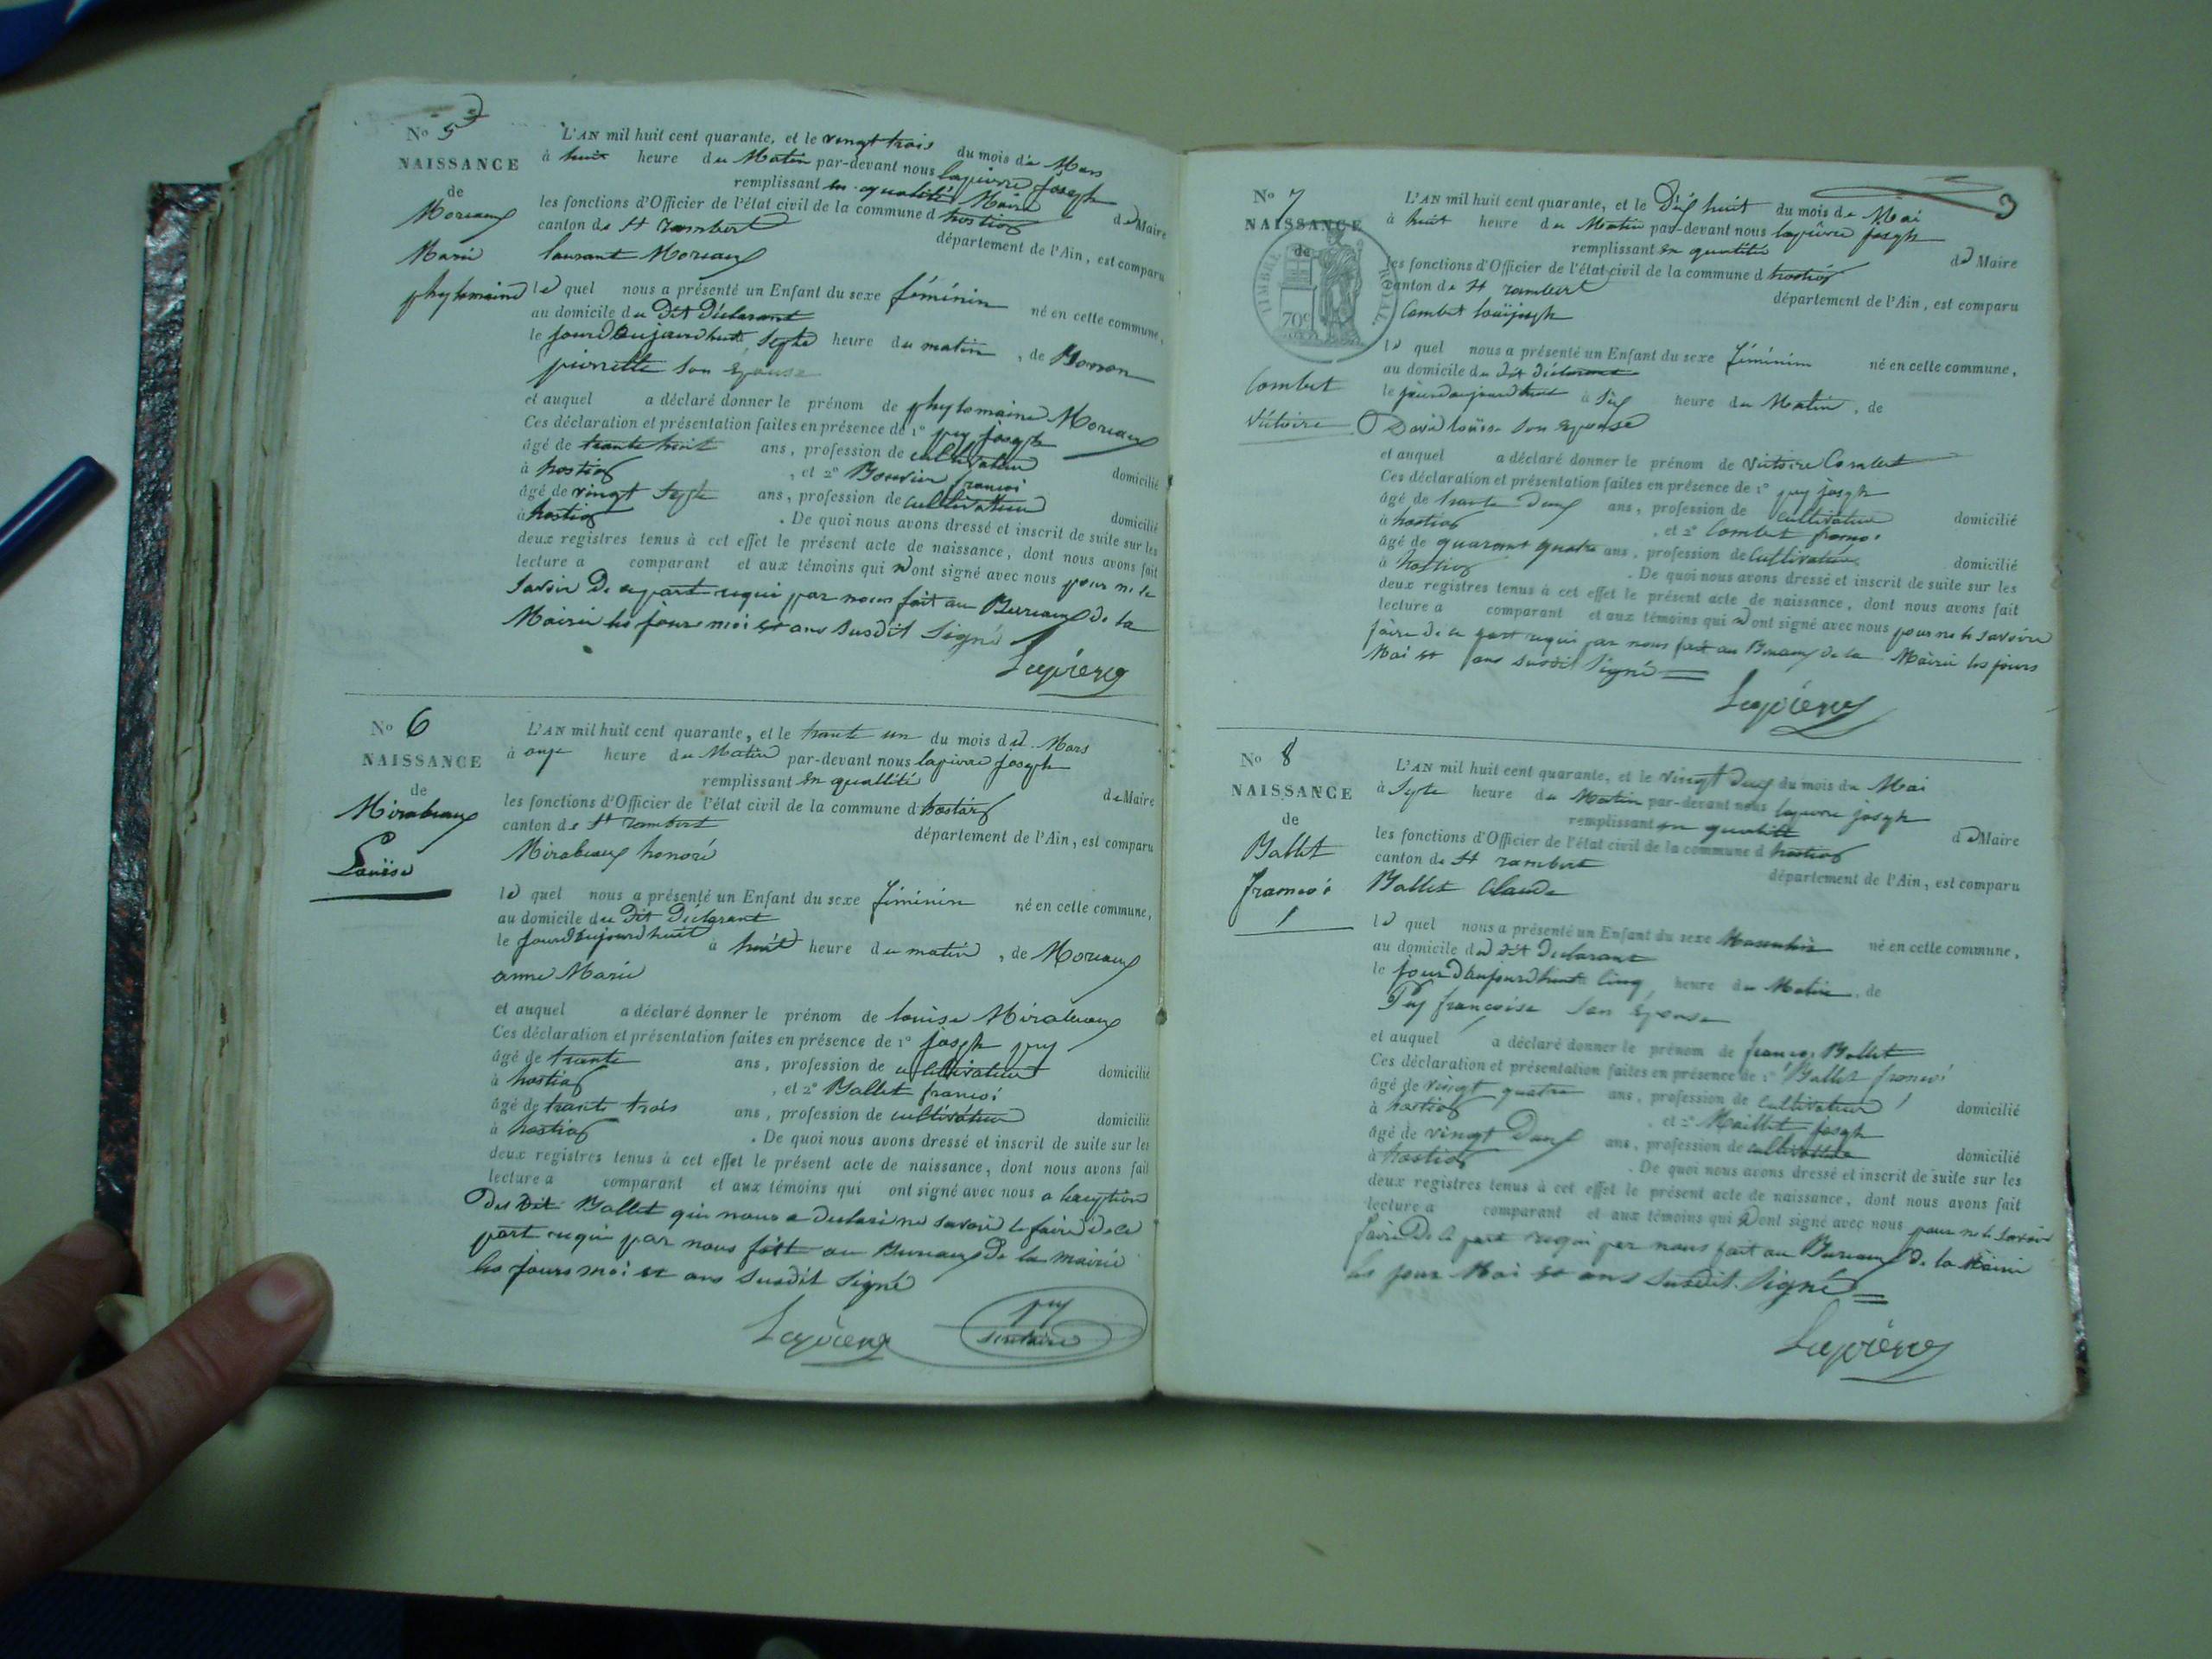 No 5
NAISSANCE
de
Moreaux
Marie
phylomaine
L'AN mil huit cent quarante, et le vingt trois du mois de Mars
à huit heure du Matin par-devant nous lapierre joseph
remplissant en qualité Maire de Maire
les fonctions d'Officier de l'état civil de la commune d hostias
canton de St rambert département de l'Ain, est comparu
laurant Moreaux
le quel nous a présenté un Enfant du sexe féminin né en cette commune,
au domicile du dit déclarant
le jourdaujourdhuit septe heure du matin, de
pierrette son épouse
et auquel a déclaré donner le prénom de phylomaine Moreaux
Ces déclaration et présentation faites en présence de 1° puy joseph
âgé de trante huit ans, profession de cultivateur domicilié
à hostias, et 2° Bouvier françoi
âgé de vingt septe ans, profession de cultivateur domicilié
à hostias. De quoi nous avons dressé et inscrit de suite sur les
deux registres tenus à cet effet le présent acte de naissance, dont nous avons fait
lecture a comparant et aux témoins qui nont signé avec nous pour ne le
savoir de cepart requi par nous fait au Bureaux de la
Mairie les jours moi et ans susdit signé
Lapierre
No 6
NAISSANCE
de
Mirabeaux
Louise
L'AN mil huit cent quarante, et le trante un du mois de Mars
à onze heure du Matin par-devant nous lapierre joseph
remplissant en quallité de Maire
les fonctions d'Officier de l'état civil de la commune d hostias
canton de St rambert département de l'Ain, est comparu
Mirabeaux honoré
le quel nous a présenté un Enfant du sexe féminin né en cette commune,
au domicile du dit déclarant
le jourdaujourdhuit à huit heure du matin, de Moreaux
anne Marie
et auquel a déclaré donner le prénom de louise Mirabeaux
Ces déclaration et présentation faites en présence de 1° joseph puy
âgé de trante ans, profession de cultivateur domicilié
à hostias, et 2° Ballet françoi
âgé de trante trois ans, profession de cultivateur domicilié
à hostias. De quoi nous avons dressé et inscrit de suite sur les
deux registres tenus à cet effet le présent acte de naissance, dont nous avons fait
lecture a comparant et aux témoins qui ont signé avec nous a laception
du dit Ballet qui nous a declaré ne savoir le faire de ce
part requi par nous fait au Bureaux de la mairie
les jours moi et ans susdit signé
Lapierre
puy
secretaire
3
No 7
NAISSANCE
de
TIMBRE ROYAL
70c
Combet
Victoire
L'AN mil huit cent quarante, et le dix huit du mois de Mai
à huit heure du Matin par-devant nous lapierre joseph
remplissant en qualité de Maire
les fonctions d'Officier de l'état civil de la commune d hostias
canton de St rambert département de l'Ain, est comparu
Combet louijoseph
le quel nous a présenté un Enfant du sexe féminin né en cette commune,
au domicile du dit déclarant
le jourdaujourdhuit à six heure du Matin, de
David louise son épouse
et auquel a déclaré donner le prénom de victoire Combet
Ces déclaration et présentation faites en présence de 1° puy joseph
âgé de trante deux ans, profession de cultivateur domicilié
à hostias, et 2° Combet françoi
âgé de quarant quatre ans, profession de Cultivateur domicilié
à hostias. De quoi nous avons dressé et inscrit de suite sur les
deux registres tenus à cet effet le présent acte de naissance, dont nous avons fait
lecture a comparant et aux témoins qui nont signé avec nous pour ne le savoire
faire de ce part requi par nous fait au Bureaux de la Mairie les jours
Moi et ans susdit signé
Lapierre
No 8
NAISSANCE
de
Ballet
françoi
L'AN mil huit cent quarante, et le vingt deux du mois du Mai
à Septe heure du Matin par-devant nous lapierre joseph
remplissant en qualité de Maire
les fonctions d'Officier de l'état civil de la commune d hostias
canton de St rambert département de l'Ain, est comparu
Ballet Claude
le quel nous a présenté un Enfant du sexe Masculin né en cette commune,
au domicile du dit déclarant
le jourdaujourdhuit Cinq heure du Matin, de
Puy françoise son épouse
et auquel a déclaré donner le prénom de françoi Ballet
Ces déclaration et présentation faites en présence de 1° Ballet françoi
âgé de vingt quatre ans, profession de Cultivateur domicilié
à hostias, et 2° Maillet joseph
âgé de vingt deux ans, profession de cultivateur domicilié
à hostias. De quoi nous avons dressé et inscrit de suite sur les
deux registres tenus à cet effet le présent acte de naissance, dont nous avons fait
lecture a comparant et aux témoins qui nont signé avec nous pour ne le savoir
faire de ce part requi par nous fait au Bureaux de la Mairie
les jour Moi et ans susdit signé
Lapierre